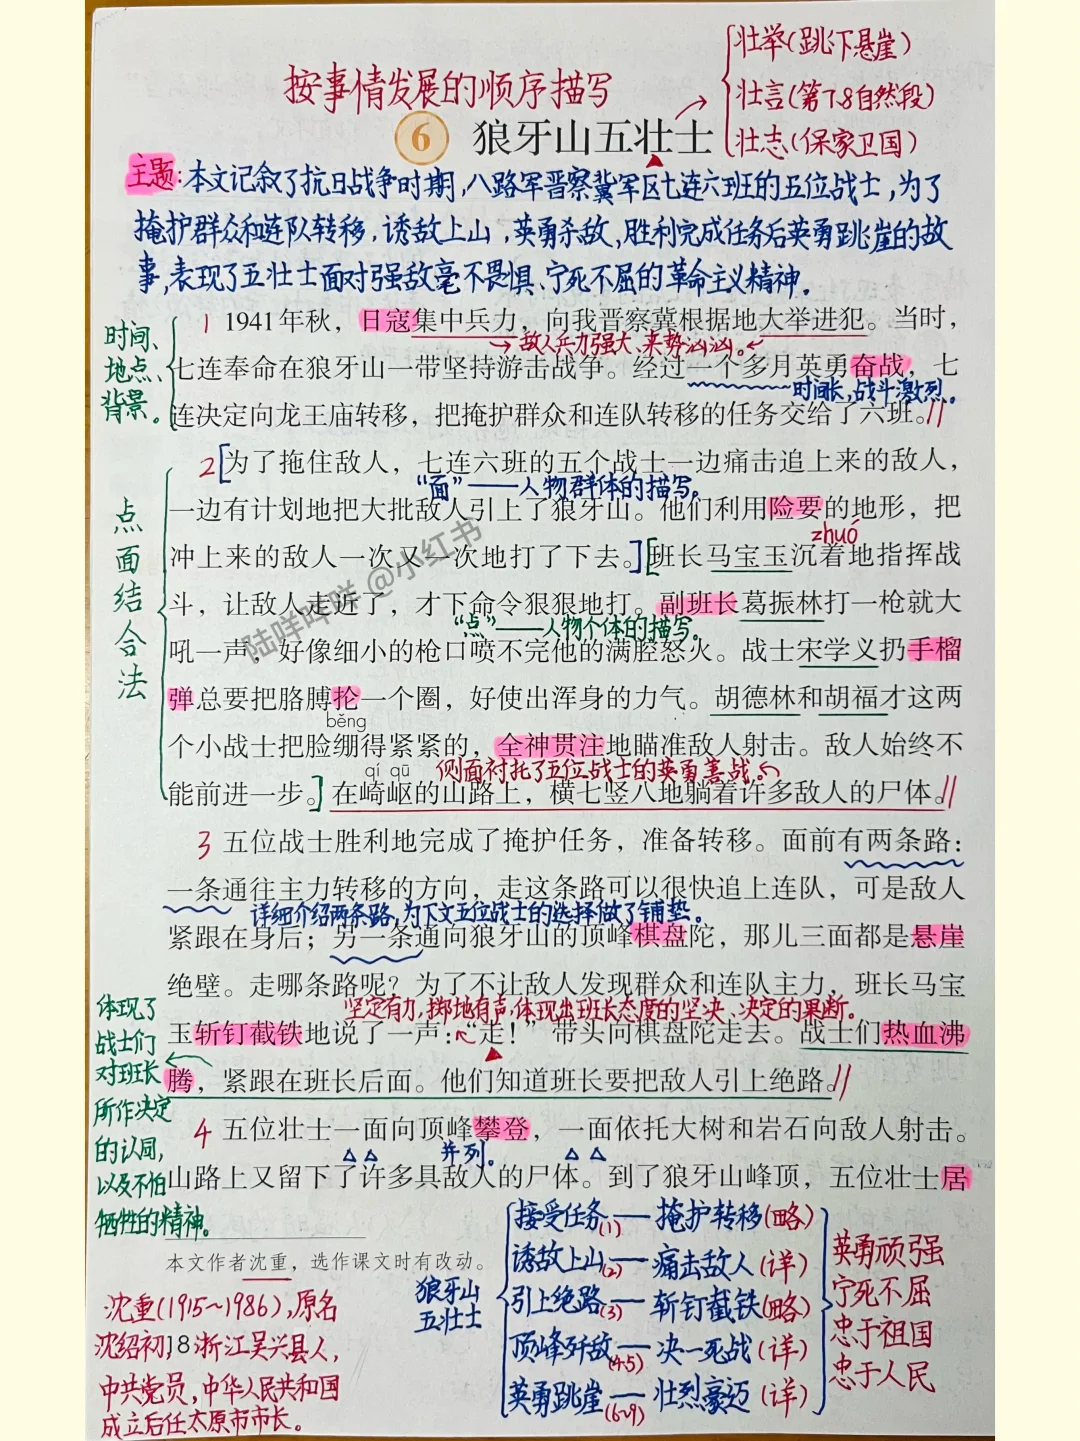 壮举(跳下悬崖)
按事情发展的顺序描写
壮言(第7.8自然段)
6 狼牙山五壮士
壮志(保家卫国)
主题:本文记叙了抗日战争时期,八路军晋察冀军区七连六班的五位战士,为了
掩护群众和连队转移,诱敌上山,英勇杀敌,胜利完成任务后英勇跳崖的故
事,表现了五壮士面对强敌毫不畏惧、宁死不屈的革命主义精神。
时间、
地点、
背景。
1 1941年秋，日寇集中兵力，向我晋察冀根据地大举进犯。当时，
→敌人兵力强大、来势汹汹。
七连奉命在狼牙山一带坚持游击战争。经过一个多月英勇奋战，七
时间长,战斗激烈。
连决定向龙王庙转移，把掩护群众和连队转移的任务交给了六班。
点面结合法
2 [为了拖住敌人，七连六班的五个战士一边痛击追上来的敌人，
“面”——人物群体的描写。
一边有计划地把大批敌人引上了狼牙山。他们利用险要的地形，把
zhuó
冲上来的敌人一次又一次地打了下去。][班长马宝玉沉着地指挥战
斗，让敌人走近了，才下命令狠狠地打。副班长葛振林打一枪就大
“点”——人物个体的描写。
吼一声，好像细小的枪口喷不完他的满腔怒火。战士宋学义扔手榴
弹总要把胳膊抡一个圈，好使出浑身的力气。胡德林和胡福才这两
běng
个小战士把脸绷得紧紧的，全神贯注地瞄准敌人射击。敌人始终不
qí qū
侧面衬托了五位战士的英勇善战。
能前进一步。]在崎岖的山路上，横七竖八地躺着许多敌人的尸体。
3 五位战士胜利地完成了掩护任务，准备转移。面前有两条路：
一条通往主力转移的方向，走这条路可以很快追上连队，可是敌人
详细介绍两条路,为下文五位战士的选择做了铺垫。
紧跟在身后；另一条通向狼牙山的顶峰棋盘陀，那儿三面都是悬崖
绝壁。走哪条路呢？为了不让敌人发现群众和连队主力，班长马宝
坚定有力,掷地有声,体现出班长态度的坚决、决定的果断。
玉斩钉截铁地说了一声：“走！”带头向棋盘陀走去。战士们热血沸
腾，紧跟在班长后面。他们知道班长要把敌人引上绝路。
体现了
战士们
对班长
所作决定
的认同,
以及不怕
牺牲的精神。
4 五位壮士一面向顶峰攀登，一面依托大树和岩石向敌人射击。
并列。
山路上又留下了许多具敌人的尸体。到了狼牙山峰顶，五位壮士居
本文作者沈重，选作课文时有改动。
沈重(1915~1986),原名
沈绍初,浙江吴兴县人,
中共党员,中华人民共和国
成立后任太原市市长。
18
狼牙山
五壮士
接受任务(1)——掩护转移(略)
诱敌上山(2)——痛击敌人(详)
引上绝路(3)——斩钉截铁(略)
顶峰歼敌(4-5)——决一死战(详)
英勇跳崖(6-9)——壮烈豪迈(详)
英勇顽强
宁死不屈
忠于祖国
忠于人民
陆咩咩咩@小红书